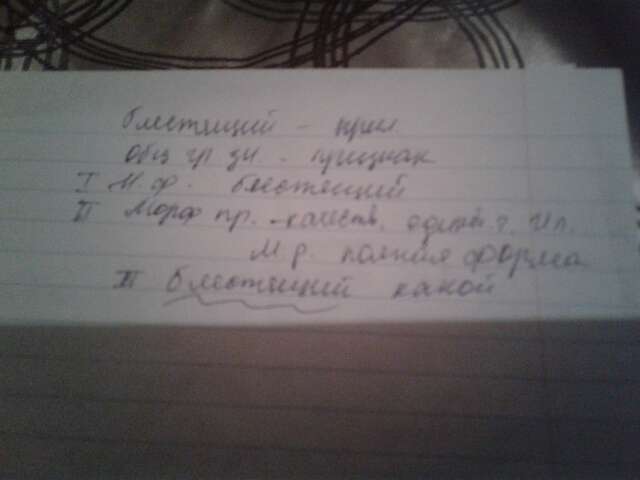 блестящий - прил
Общ гр зн - признак
I Н.ф. блестящий
II Морф пр. - качеств, един. ч. И п.
М р. полная форма
III блестящий какой